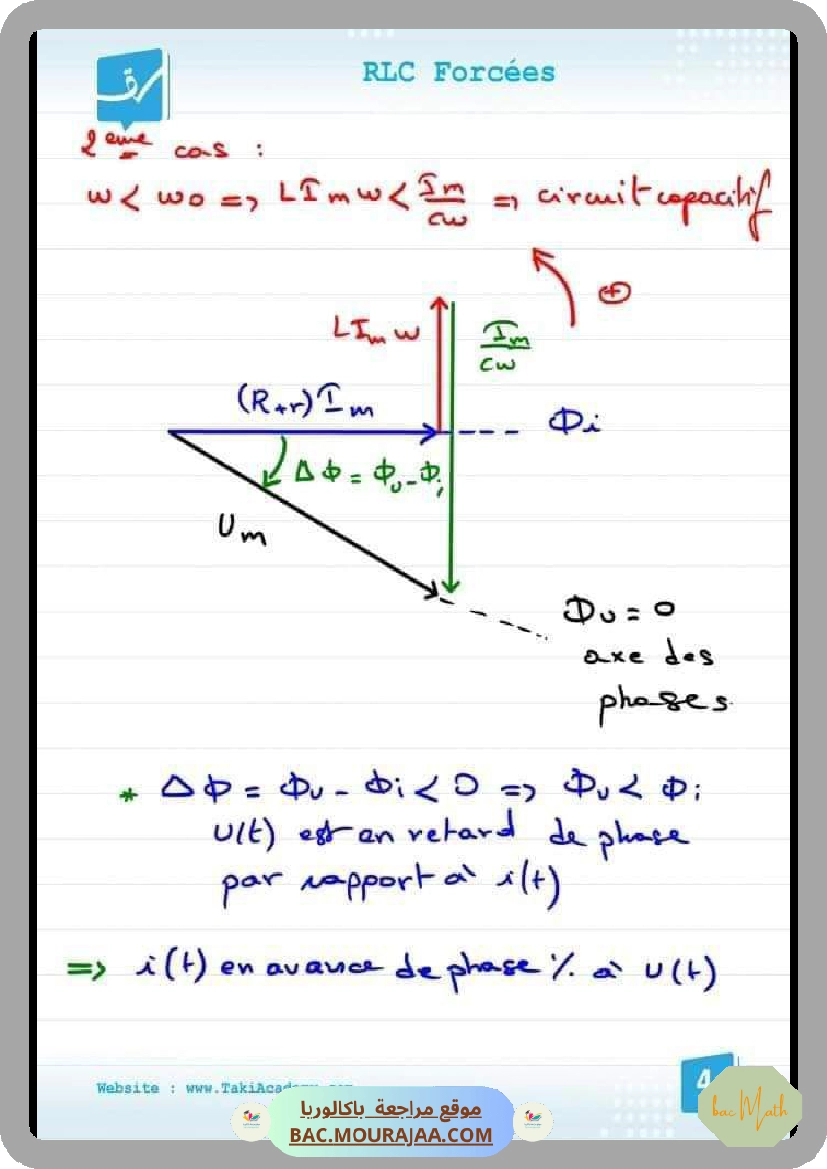 RLC Forcées
2ème cas :
w < w0 => LImw < Im/cw => circuit capacitif
+
LImw
Im/cw
(R+r)Im
Φi
Δφ = Φu - Φi
Um
Φu = 0
axe des
phases
* Δφ = Φu - Φi < 0 => Φu < Φi
U(t) est en retard de phase
par rapport à i(t)
=> i(t) en avance de phase % à U(t)
4
موقع مراجعة باكالوريا
BAC.MOURAJAA.COM
bac Math